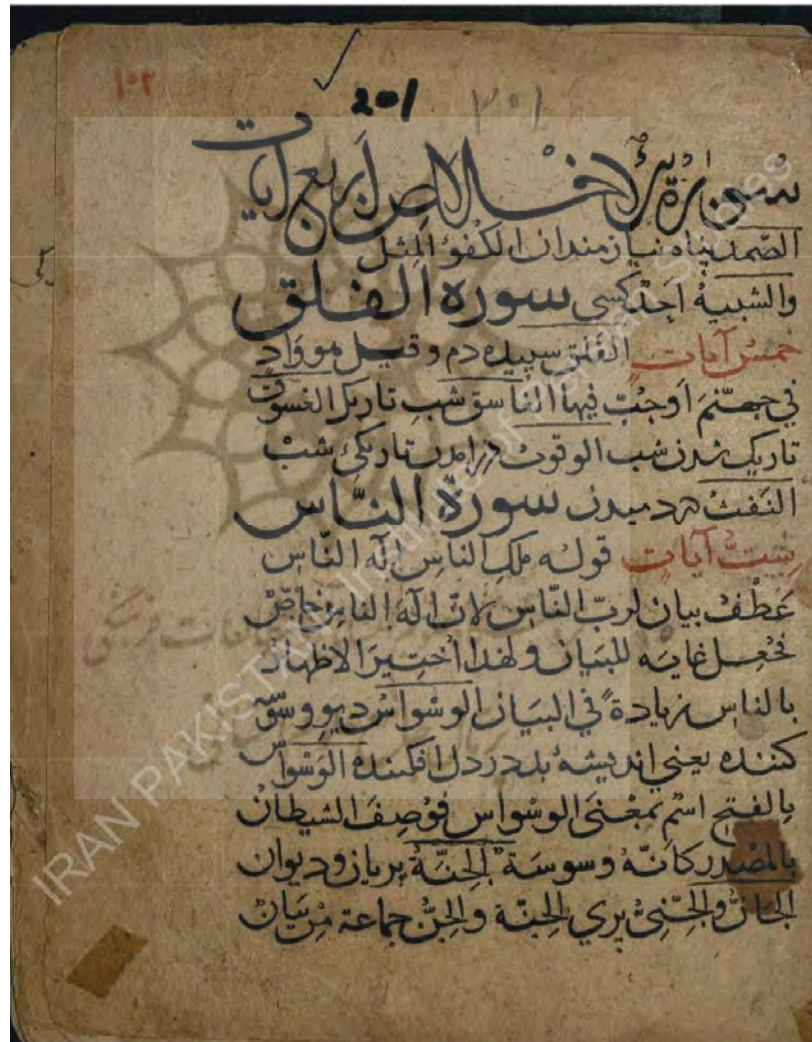 ۱۰۲
201 ۳۰۱
سورة الاخلاص اربع آيات
الصّمد پناه نیازمندان الكفؤ المِثل
والشبيهُ اَحَدٌ كسى سورة الفلق
خمسُ آيات الفلق سپیده دم و قيل هو وَادٍ
في جهنّمَ اَوجُبّ فيها الغاسق شبِ تاریک الغسوق
تاریک شدن شب الوقوب درآمدن تاریکئ شب
النَفث دردمیدن سورة النّاس
سِتُّ آيات قوله ملكِ الناس إلَه النّاس
عَطْفُ بيان لربّ النّاس لانّ الَه الناس خاصٌّ
فجُعِل غاية للبَيان ولهذا اُختِيرَ الاظهار
بالناس زيادةً في البيان الوسْواس دیو وسوسه
كننده یعني اندیشهٔ بد در دل افکننده الوَسْواس
بالفتح اسْم بمَعْنى الوسْواس فوُصِفَ الشيطانُ
بالمصْدر كانّهُ وسوسة الجِنّةُ پریان و دیوان
الجانّ والجِنِّىّ پری الجِنّة والجِنُّ جماعة مِن بَيانٌ
IRAN PAKISTAN Institute of Persian Studies